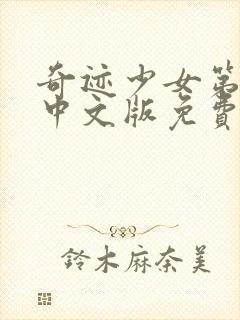 奇迹少女第
中文版免费
鈴木麻奈美